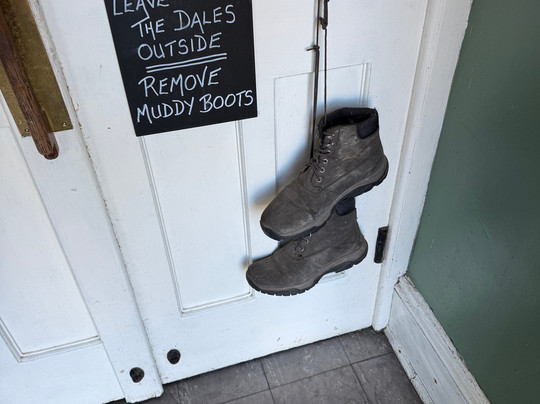 LEAVE
THE DALES
OUTSIDE
REMOVE
MUDDY BOOTS